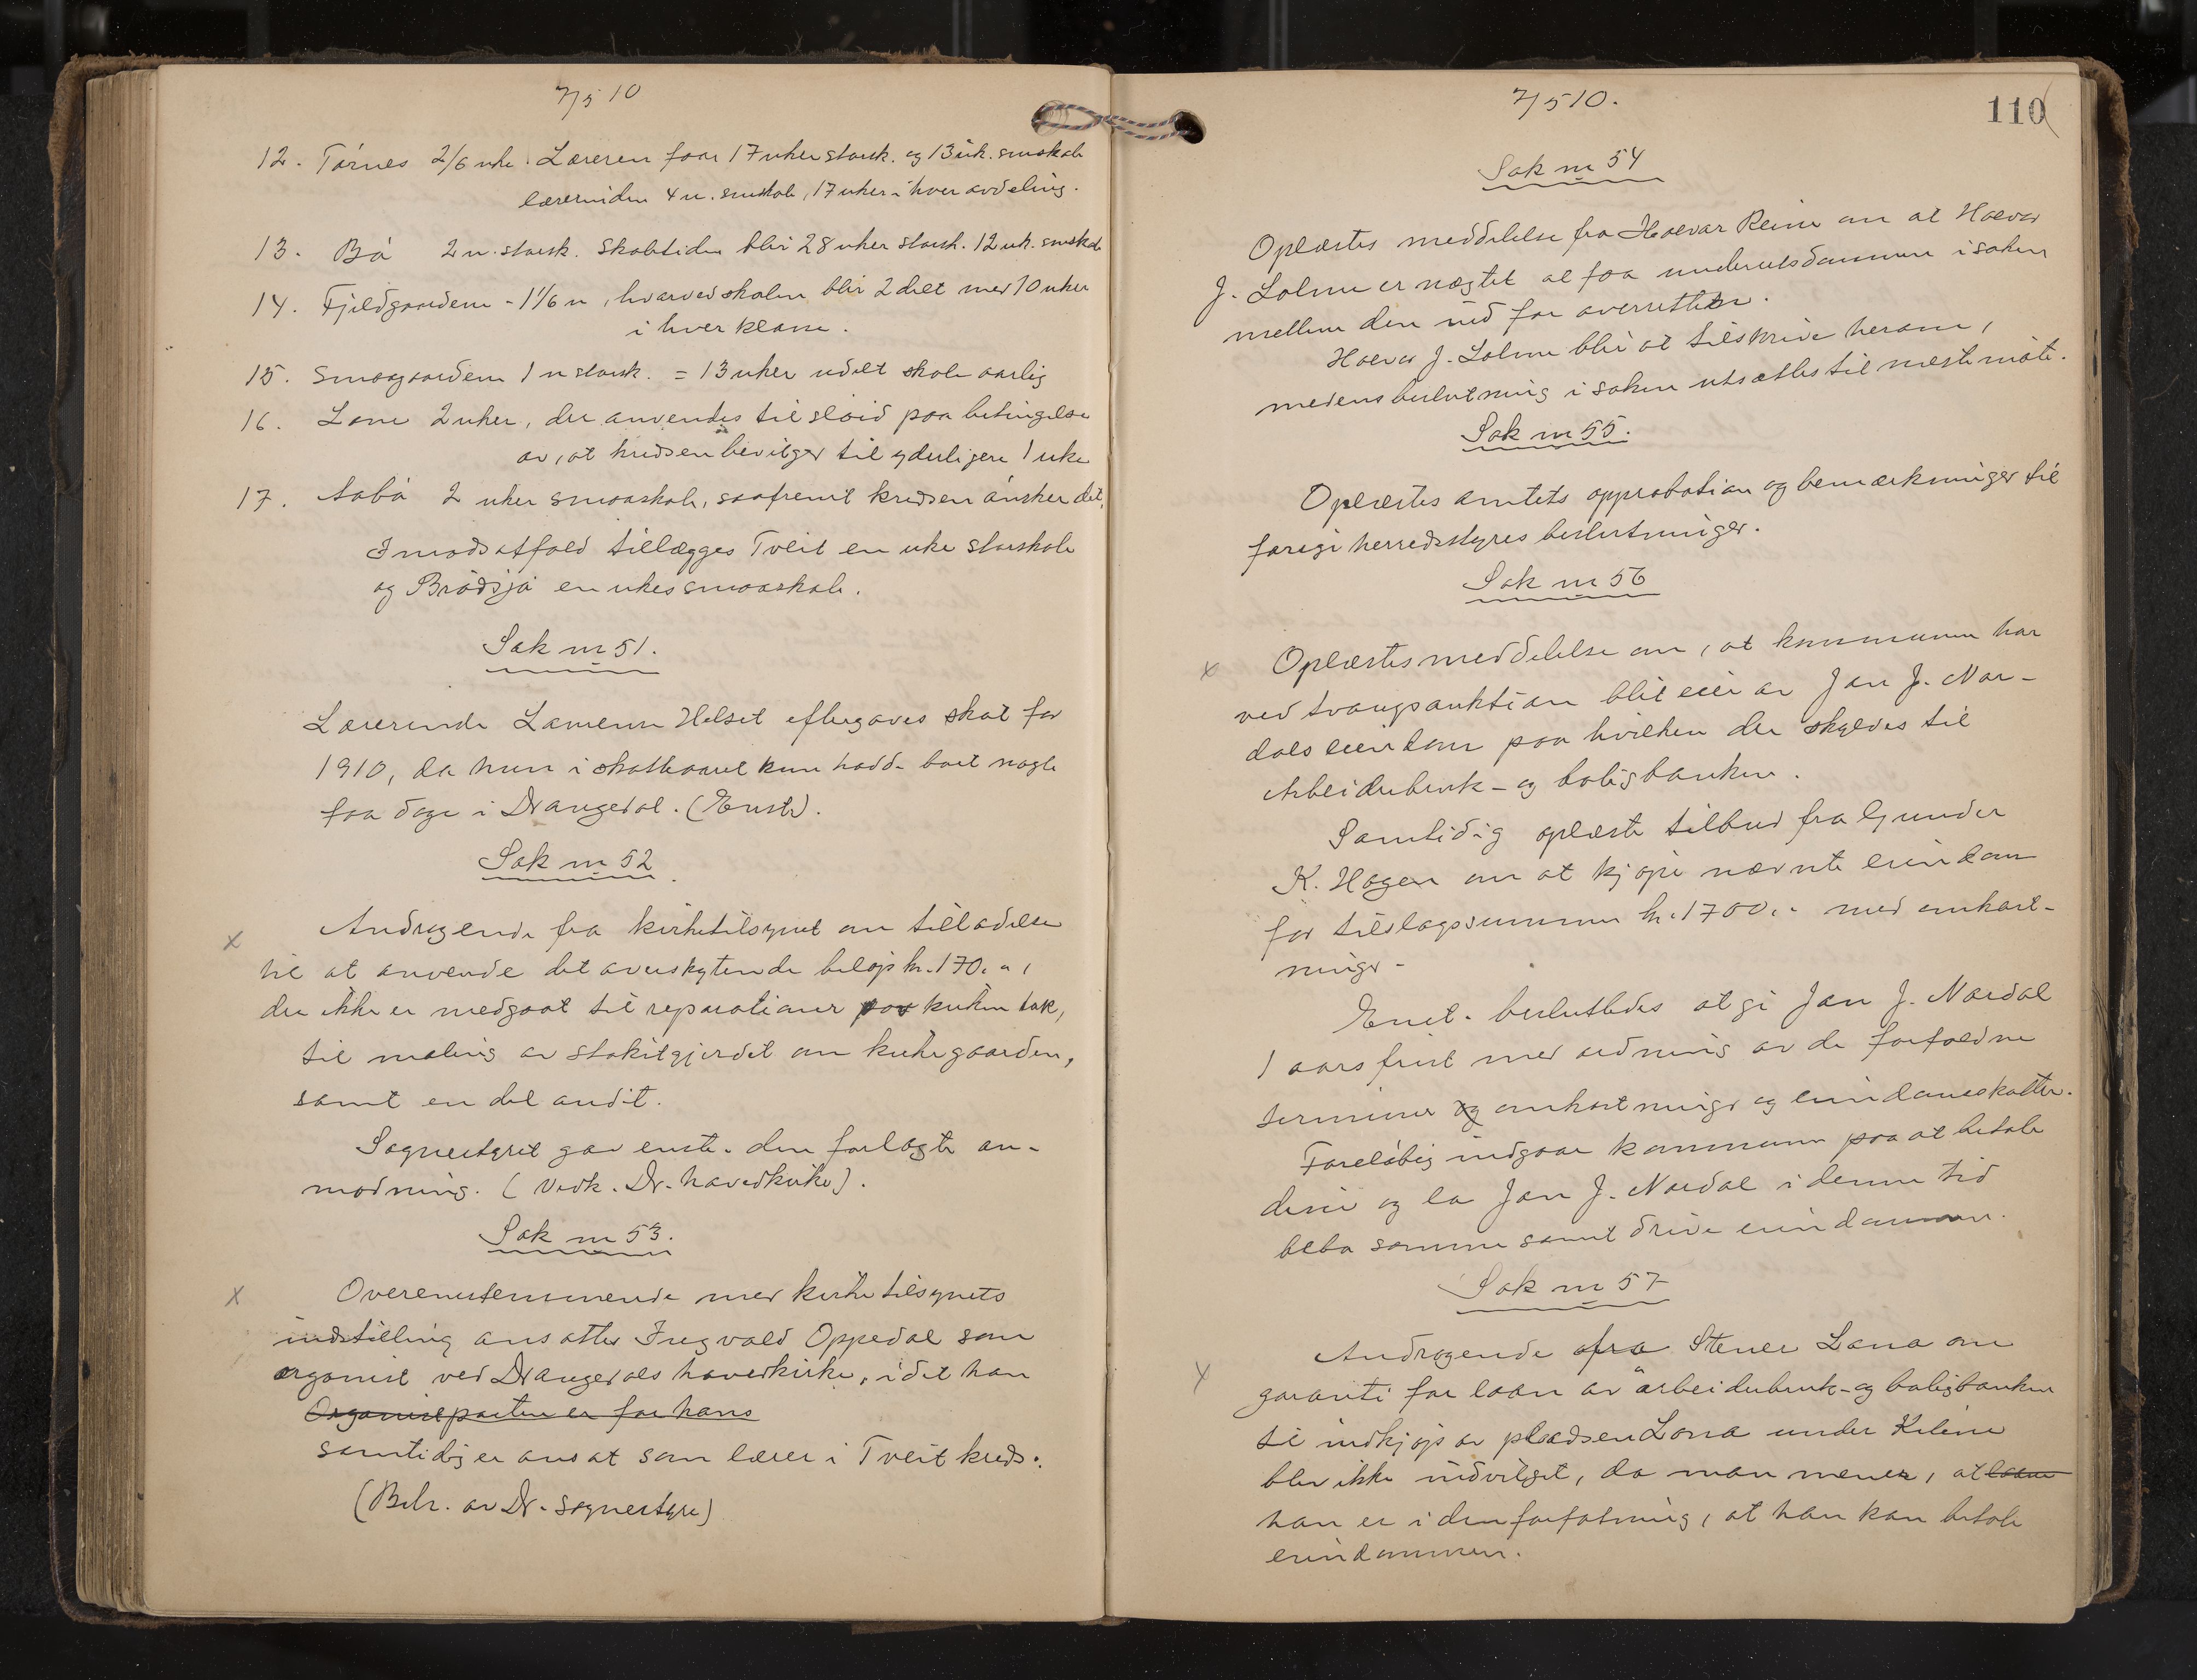 7/5 10
12. Tórnes 2/6 uke. Læreren faar 17 uker storsk. og 13 uk. smskole
lærerinden 4 u. smskole, 17 uker i hver avdeling.
13. Bó 2 u. storsk. Skoletiden blir 28 uker storsk. 12 uk. smskole
14. Fjeldgaardene - 1 1/6 u, hvorved skolen blir 2 delt med 10 uker
i hver klasse.
15. Smaagaardene 1 u storsk. = 13 uker udelt skole aarlig
16. Lone 2 uker, der anvendes til slöid paa betingelse
av, at kredsen bevilger til yderligere 1 uke
17. Aabó 2 uker smaaskole, saafremt kredsen ónsker det,
I modsatfald tillægges Tveit en uke storskole
og Bródsjó en ukes smaaskole.
Sak nr 51.
Lærerinde Helset eftergaves skat for
1910, da hun i skatteaaret kun hadde boet nogle
faa dage i Drangedal. (Enst).
Sak nr 52
x Andragende fra kirketilsynet om tilladelse
til at anvende det overskytende beløp kr. 170. " ,
der ikke er medgaat til reparationer paa kirkens tak,
til maling av stakitgjerdet om kirkegaarden,
samt en del andet.
Sognestyret gav enst. den forlagte an-
modning. (Vedk. Dr. hovedkirke).
Sak nr 53.
x Overensstemmende med kirketilsynets
indstilling ansattes Ingvald Oppedal som
organist ved Drangedals hovedkirke, idet han
Organistposten er for hans
samtidig er ansat som lærer i Tveit kreds.
(Beh. av Dr. sognestyre)
7/5 10.
110
Sak nr 54
Oplæstes meddelelse fra Halvor Reine om at Halvor
J. Lolme er nægtet at faa underretsdommen i saken
mellem den ind for overretten.
Halvor J. Lolme blir at tilskrive herom,
medens beslutning i saken utsættes til næste møte.
Sak nr 55.
Oplæstes amtets approbation og bemærkninger til
forrige herredsstyres beslutninger.
Sak nr 56
x Oplæstes meddelelse om, at kommunen har
ved tvangsauktion blit eier av Jan J. Nor-
dals eiendom paa hvilken der skyldes til
Arbeiderbruk- og boligbanken.
Samtidig oplæste tilbud fra Gunder
K. Hagen om at kjøpe nævnte eiendom
for tilslagssummen kr. 1700. " med omkost-
ninger.
Enst. besluttedes at gi Jan J. Nordal
1 aars frist med ordning av de forfaldne
terminer og omkostninger og eiendomsskatter.
Foreløbig indgaar kommunen paa at betale
disse og la Jan J. Nordal i denne tid
bebo samme samt drive eiendommen.
Sak nr 57
x Andragende fra Stener Lona om
garanti for laan av arbeiderbruk- og boligbanken
til indkjøp av pladsen Lona under Kilene
blev ikke indvilget, da man mener, at
han er i den forfatning, at han kan betale
eiendommen.